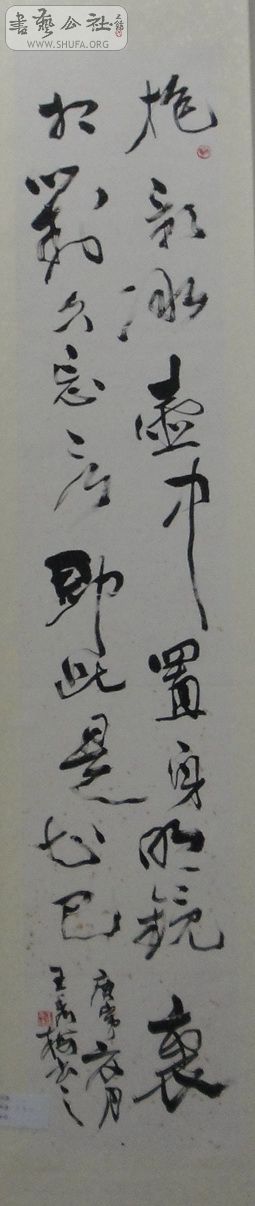 書藝公社
WWW.SHUFA.ORG
抱影冰壺中置身明鏡裏
相對久忘言即此是知己
庚寅月
王梅書之